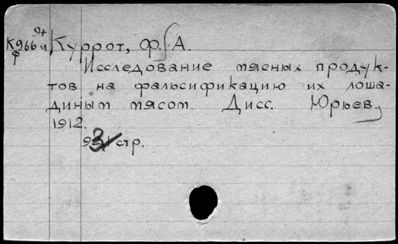 Куррот, Ф. А.
Исследование мясных продук-
тов на фальсификацию их лоша-
диным мясом. Дисс. Юрьев,
1912.
стр.